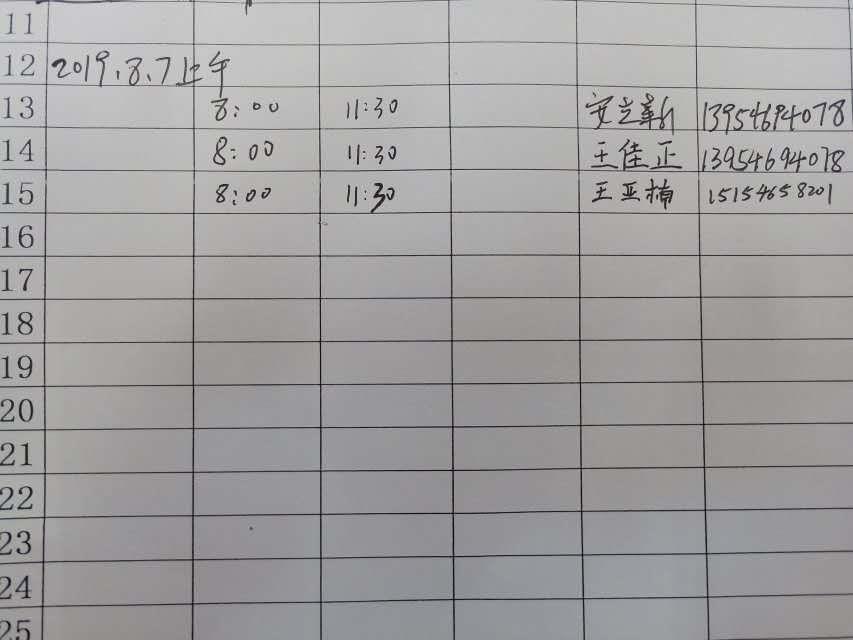 11
12 2019.8.7上午
13 8:00 11:30 安芝新 13954694078
14 8:00 11:30 王佳正 13954694078
15 8:00 11:30 王亚楠 15154658201
16
17
18
19
20
21
22
23
24
25